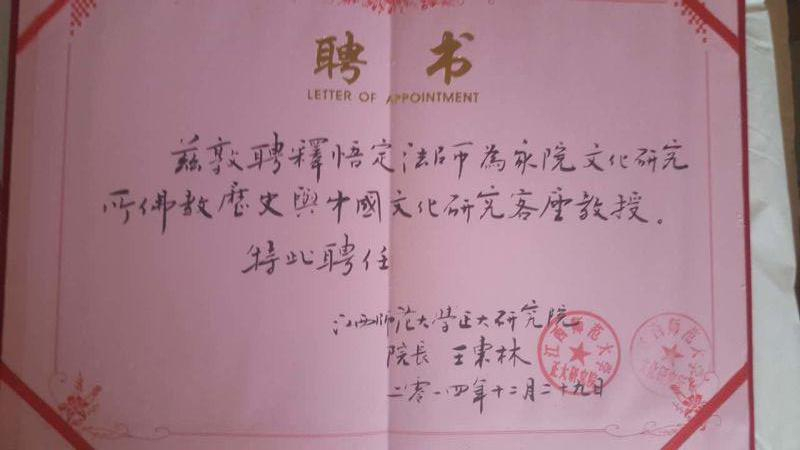 聘书
LETTER OF APPOINTMENT
兹敦聘釋悟定法师為我院文化研究
所佛教歷史與中國文化研究客座教授。
特此聘任
江西师范大学正大研究院
院長 王東林
二零一四年十二月二十九日
江西师范大学
正大研究院